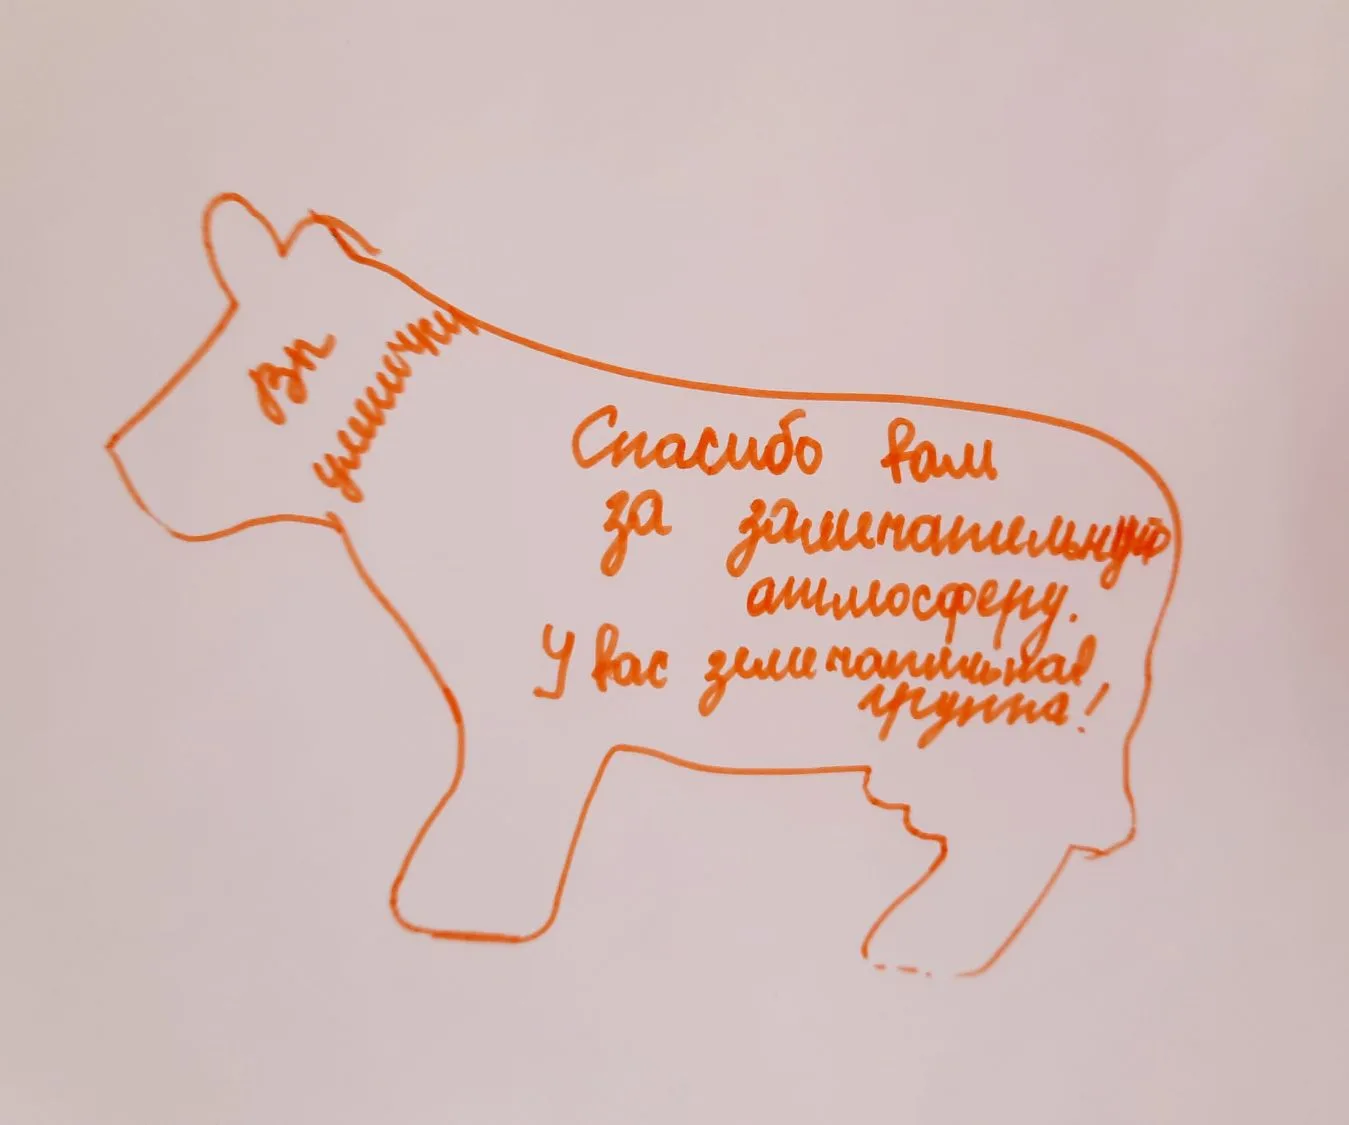 Вы
умнички
Спасибо вам
за замечательную
атмосферу.
У вас замечательная
группа!